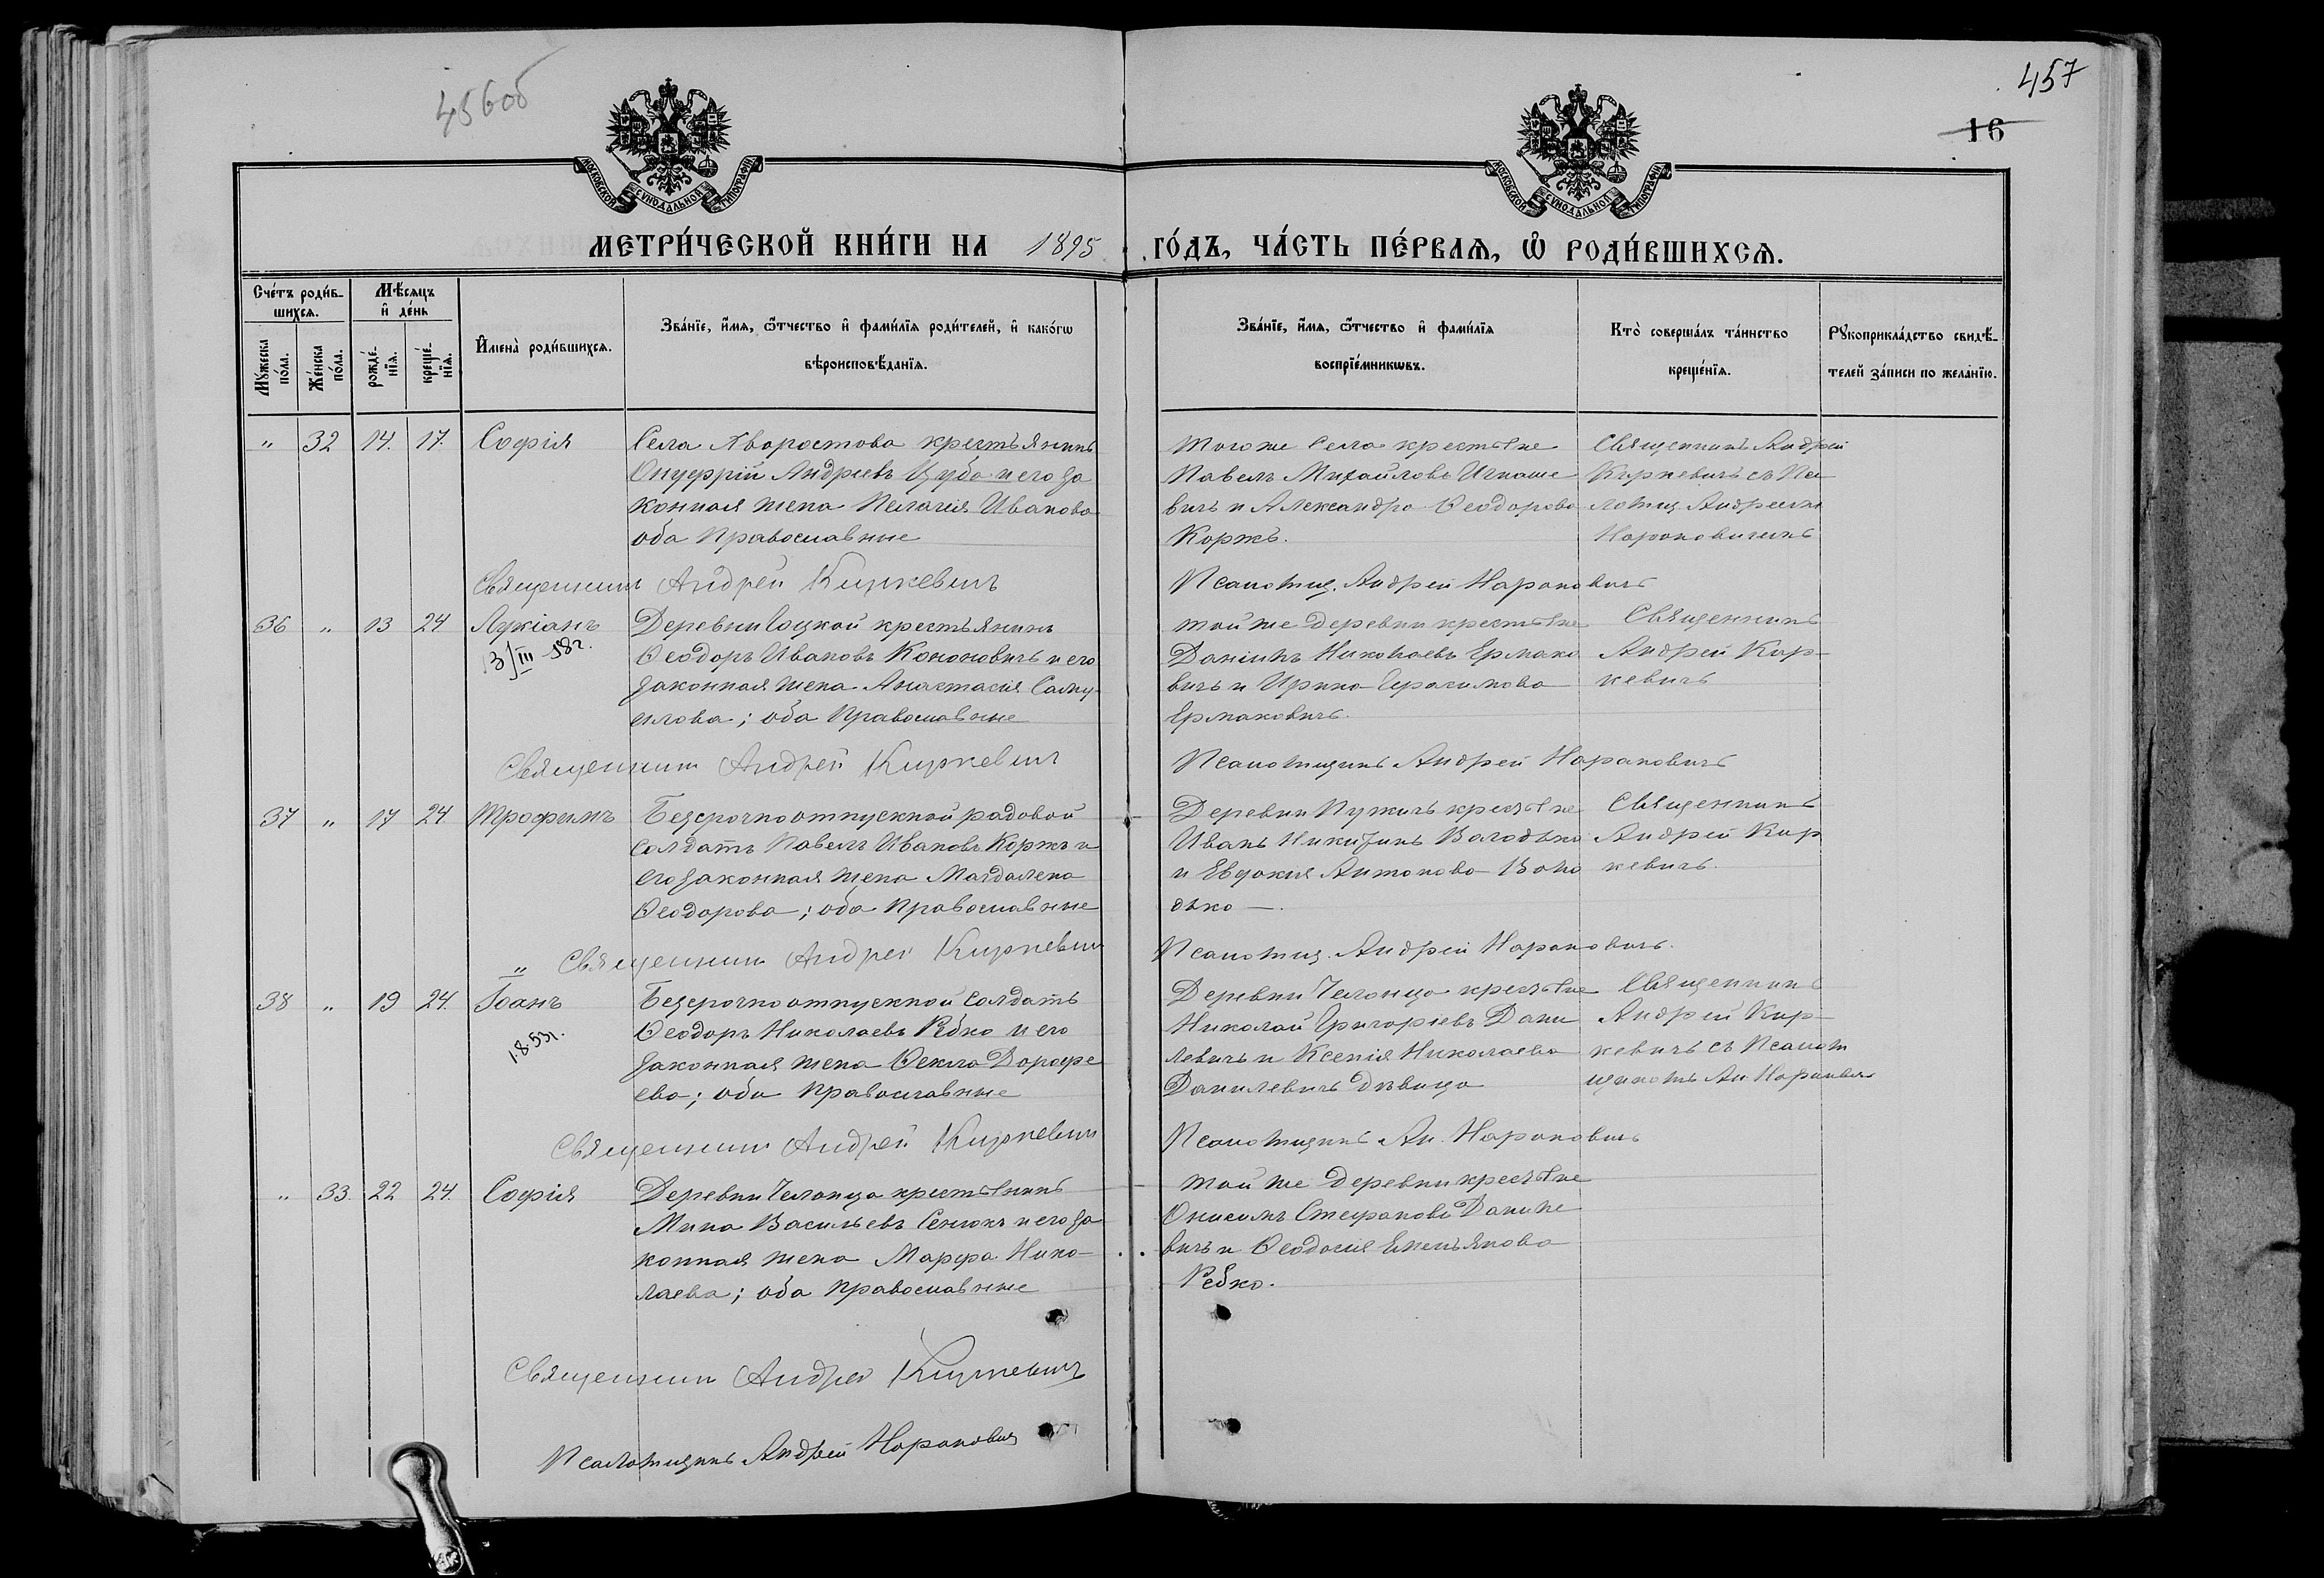 456об
457
16
МОСКОВСКОЙ СѴНОДАЛЬНОЙ ТИПОГРАФІИ
МОСКОВСКОЙ СѴНОДАЛЬНОЙ ТИПОГРАФІИ
МЕТРИ́ЧЕСКОЙ КНИ́ГИ НА 1895 ГО́ДЪ, ЧА́СТЬ ПЕ́РВАѦ, Ѡ҆ РОДИ́ВШИХСѦ.
Сче́тъ роди́в-
шихсѧ.
Мꙋ́жеска по́ла.
Же́нска по́ла.
Мѣ́сѧцъ
и҆ де́нь
рожде́-
нїѧ.
креще́-
нїѧ.
И҆мена̀ роди́вшихсѧ.
Зва́нїе, и҆́мѧ, ѻ҆́тчество и҆ фами́лїѧ роди́телей, и҆ како́гѡ
вѣроисповѣ́данїѧ.
Зва́нїе, и҆́мѧ, ѻ҆́тчество и҆ фами́лїѧ
воспрїе́мникѡвъ.
Кто̀ соверша́лъ та́инство
креще́нїѧ.
Рꙋкоприкла́дство свидѣ́-
телей за́писи по жела́нїю.
" 32 14. 17. Софія
Села Хворостова крестьянинъ
Онуфрій Андреевъ Цуба и его за
конная жена Пелагія Иванова
оба Православные
того же Села крестьяне
Павелъ Михайловъ Игнаше
вичъ и Александра Ѳеодорова
Коржъ.
Священникъ Андрей
Киркевичъ съ Пса
ломщ. Андреемъ
Нароновичемъ
Священникъ Андрей Киркевичъ
Псаломщ. Андрей Нароновичъ
36 " 13 24 Лукіанъ
13/III 58г.
Деревни Гоцкой крестьянинъ
Ѳеодоръ Ивановъ Кононовичъ и его
законная жена Анастасія Саму-
илова; оба Православные
той же деревни крестьяне
Даніилъ Николаевъ Ермако
вичъ и Ирина Герасимова
Ермаковичъ.
Священникъ
Андрей Кир-
кевичъ
Священникъ Андрей Киркевичъ
Псаломщикъ Андрей Нароновичъ
37 " 17 24. Трофимъ
Безсрочноотпускной рядовой
солдатъ Павелъ Ивановъ Коржъ и
его законная жена Магдалена
Ѳеодорова; оба Православные
Деревни Пужичъ крестьяне
Иванъ Никитинъ Володько
и Евдокія Антонова Воло
дько —.
Священникъ
Андрей Кир
кевичъ.
" Священникъ Андрей Киркевичъ
Псаломщ. Андрей Нароновичъ.
38 " 19 24. Іоанъ
1.8.55г.
Безсрочноотпускной солдатъ
Ѳеодоръ Николаевъ Рѣбко и его
законная жена Ѳекла Дорофе
ева; оба православные
Деревни Челонца крестьяне
Николай Григоріевъ Дани
левичъ и Ксенія Николаева
Данилевичъ дѣвица
Священникъ
Андрей Кир-
кевичъ съ Псалом
щикомъ Ан Нароновичъ
Священникъ Андрей Киркевичъ
Псаломщикъ Ан. Нароновичъ
" 33. 22 24. Софія
Деревни Челонца крестьянинъ
Мина Васильевъ Сенюкъ и его за
конная жена Марфа Нико-
лаева; оба православные
той же деревни крестьяне
Онисимъ Стефановъ Даниле
вичъ и Ѳеодосія Емельянова
Ребко.
Священникъ Андрей Киркевичъ
Псаломщикъ Андрей Нароновичъ